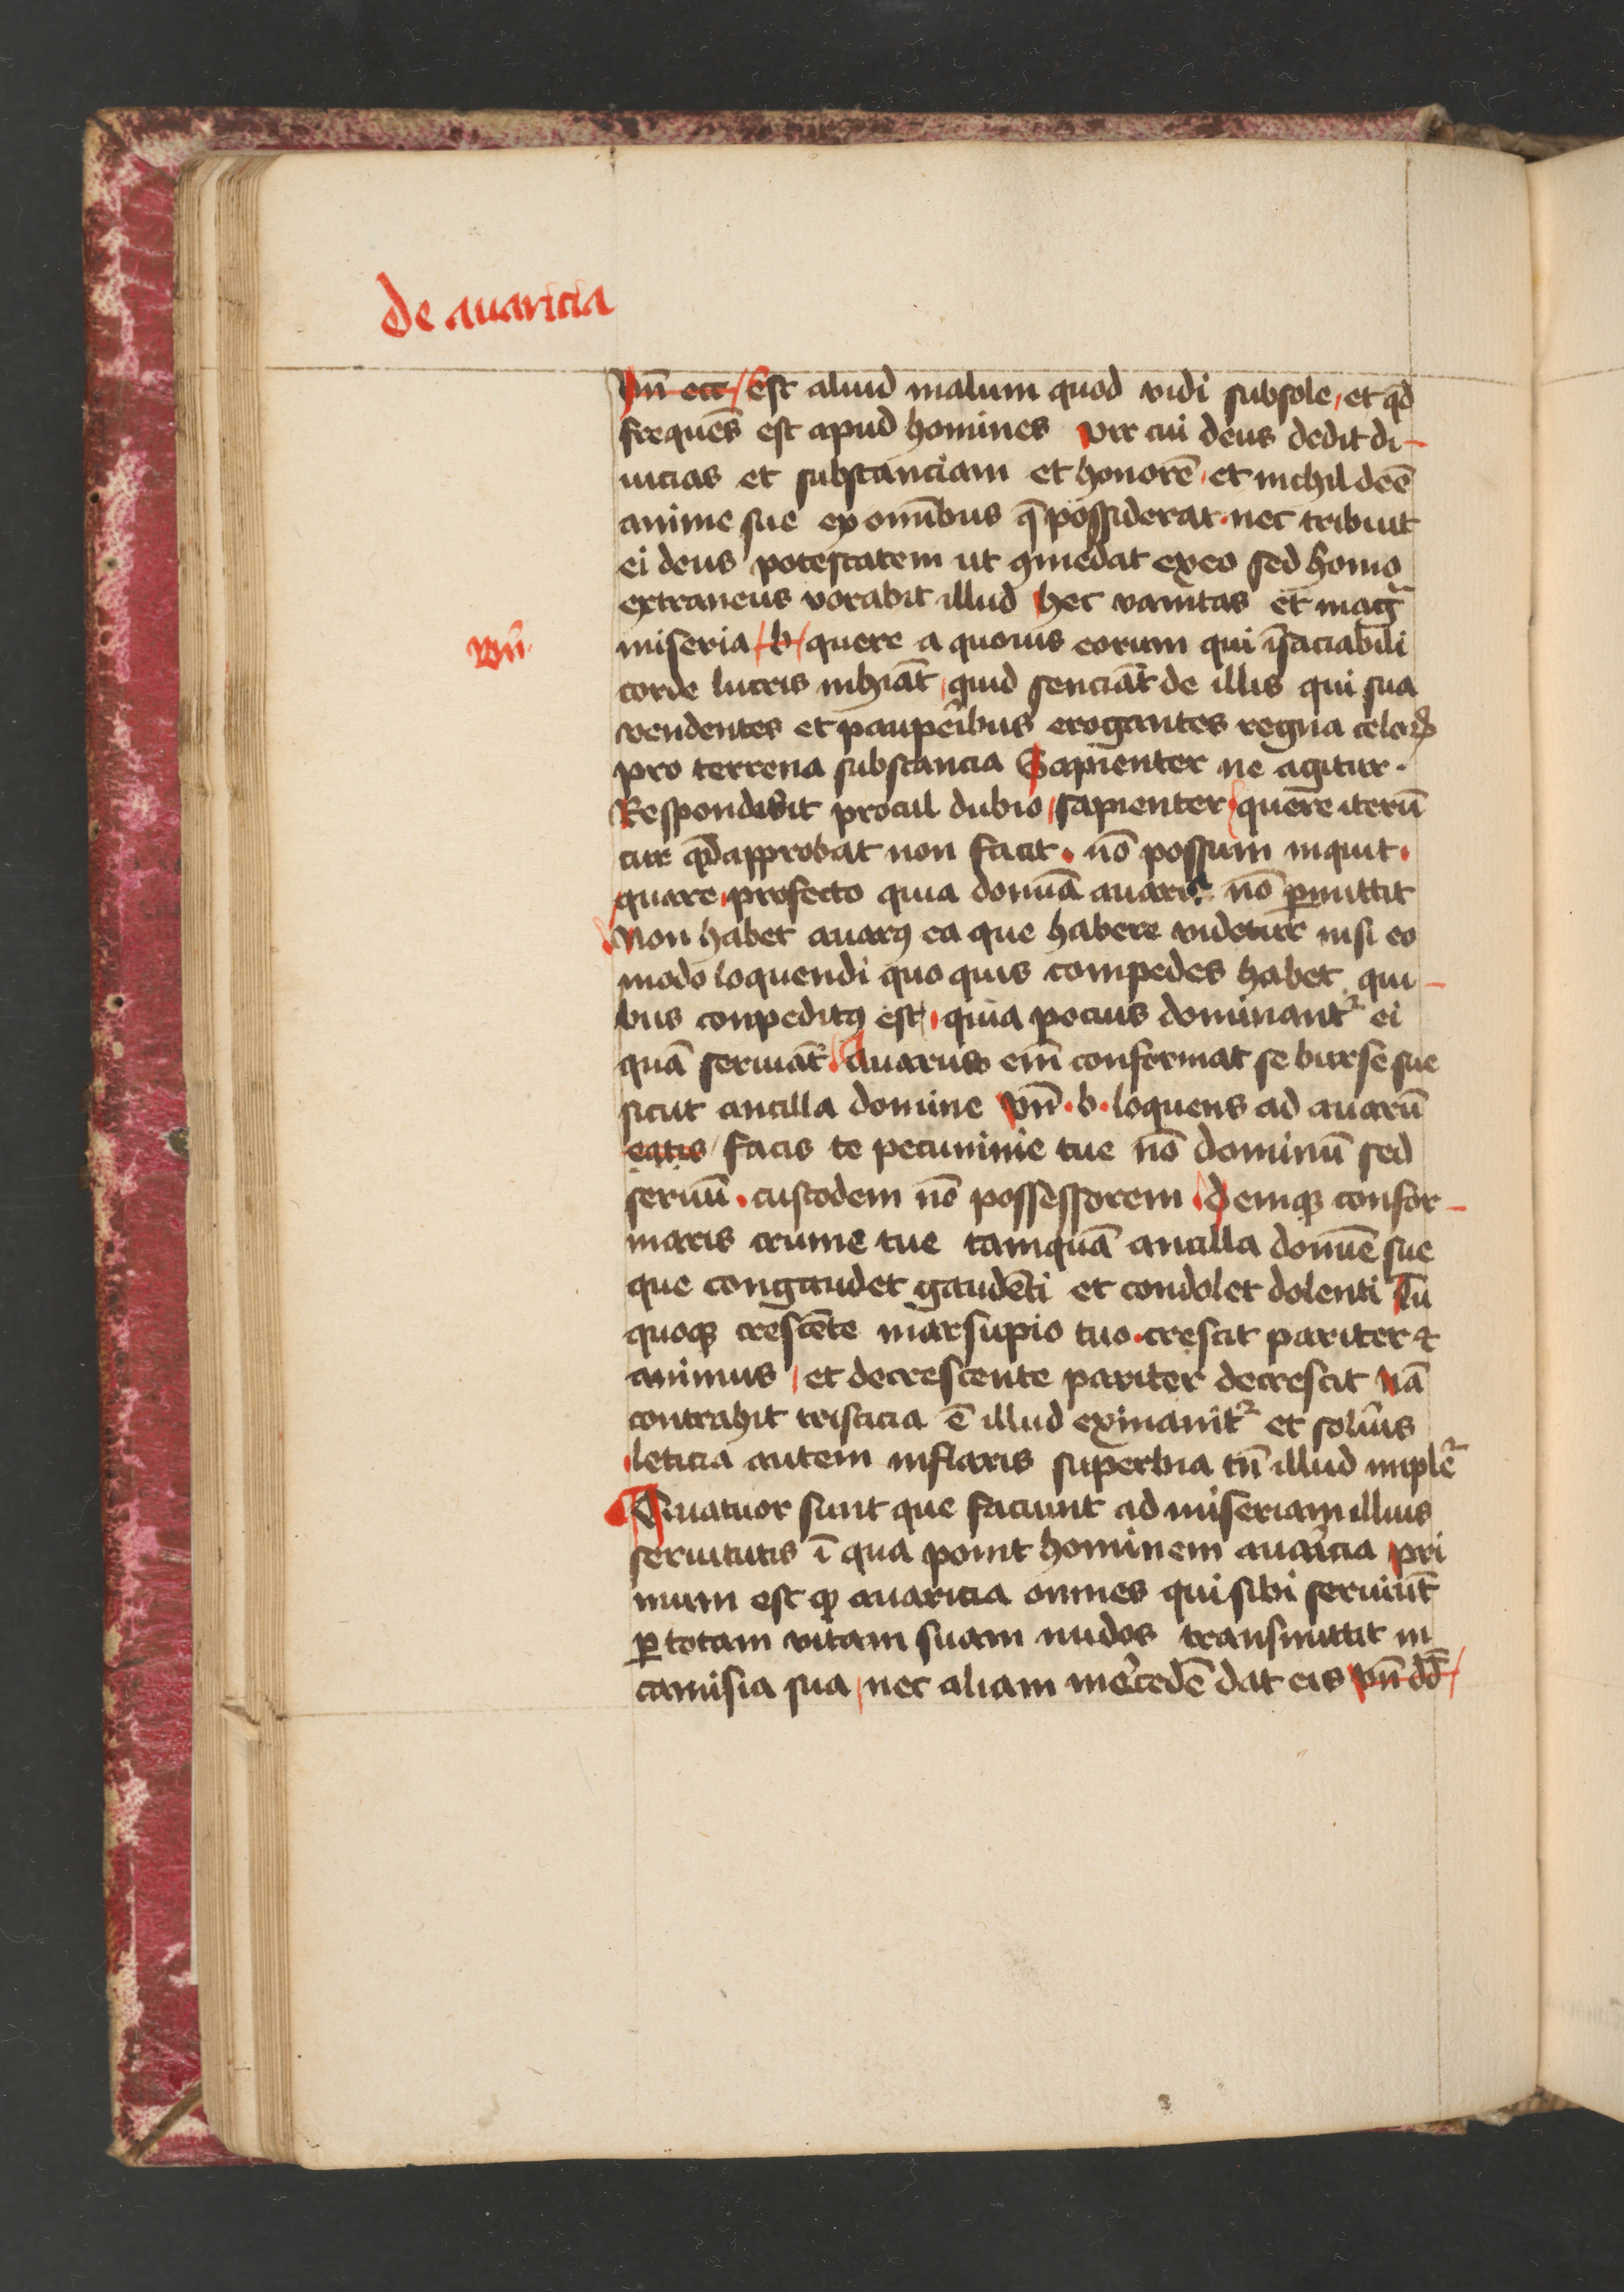 De auaricia
Vn̄ ecc̄ / Est aliud malum quod vidi subsole, et qd̄
frequēs est apud homines vir cui deus dedit di-
uicias et substanciam et honorē, et nichil deē
anime sue ex omībus q̄ possiderat. nec tribuit
ei deus potestatem ut ꝯmedat exeo sed homo
extraneus vorabit illud hec vanitas et mag̃
miseria / b / quere a quouis eorum qui īsaciabili
Vn̄.
corde lucris inhiāt, quid senciāt de illis qui sua
vendentes et paupeĩbus erogantes regna celoꝝ
pro terrena substancia Sapienter ne agitur.
Respondebit procul dubio, sapienter, quere iterū
cur qd̄ approbat non facit. nō possum inquit.
quare, profecto quia domīa auaris nō ꝑmittit
Non habet auarꝰ ea que habere videtur nisi eo
modo loquendi quo quis compedes habet qui-
bus conpeditꝰ est, quia pocius dominant̃ ei
quā seruāt. Auarus em̄ conformat se burse sue
sicut ancilla domine Vn̄. b. loquens ad auarū
eatis / facis te pecuninie tue nō dominū sed
seruū. custodem nō possessorem. Deniqꝫ confor-
maris crume tue tamquā ancilla domīe sue
que congaudet gaudēti et condolet dolenti Tu
quoqꝫ crescēte marsupio tuo. crescit pariter ⁊
animus, et decrescente pariter decrescit nā
contrahit tristicia ē illud exinanit̃ et soluĩs
leticia autem inflaris superbia tn̄ illud implet̃
Quatuor sunt que faciunt ad miseriam illius
seruitutis ī qua ponit hominem auaricia pri
mum est ꝙ auaricia omnes qui sibi seruiūt
ꝑ totam vitam suam nudos transmittit in
camisia sua, nec aliam mercedē dat eis vn̄ dd̄ /